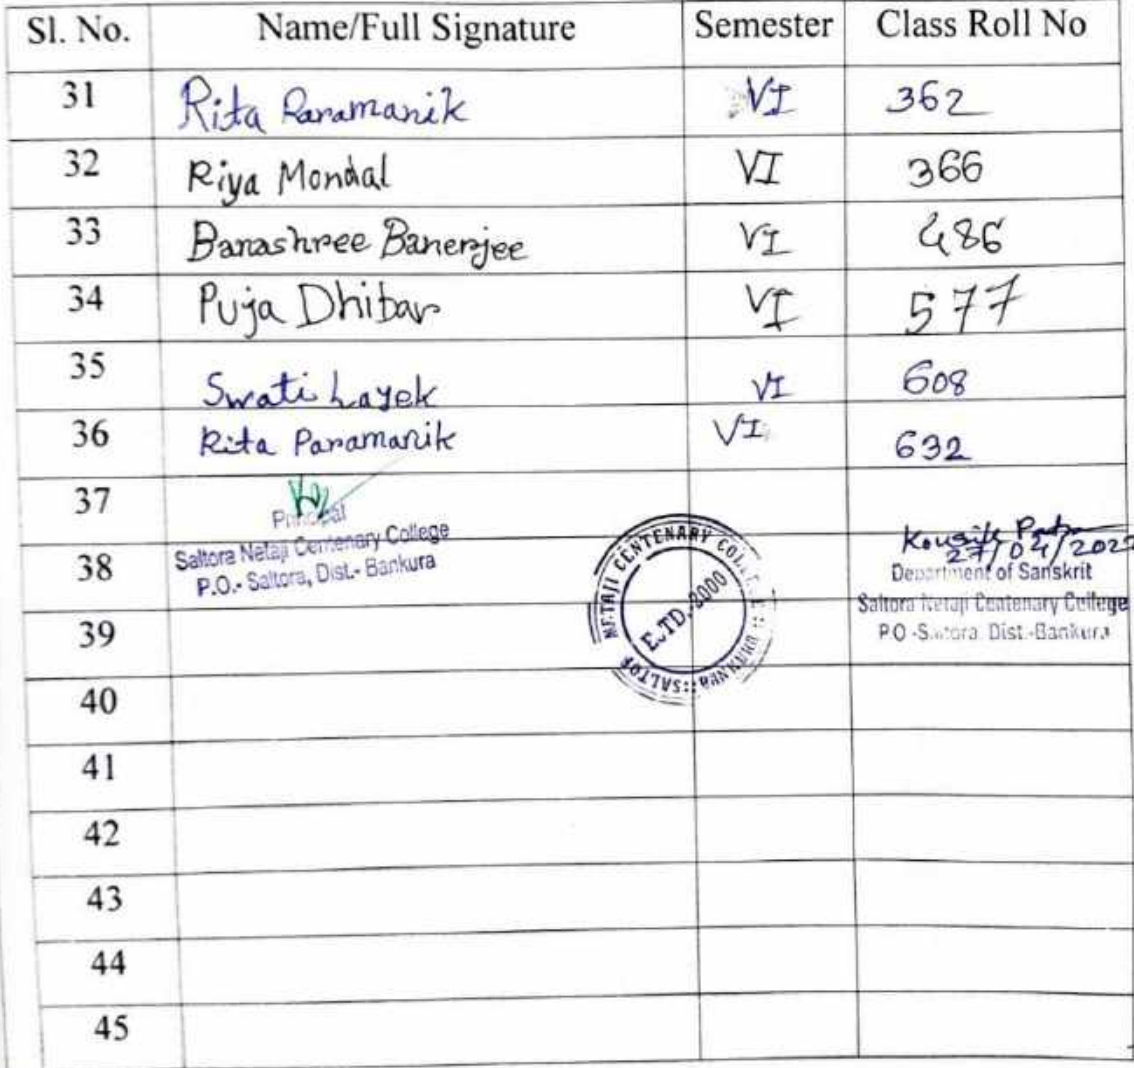 Sl. No. Name/Full Signature Semester Class Roll No
31 Rita Paramanik VI 362
32 Riya Mondal VI 366
33 Banashree Banerjee VI 486
34 Puja Dhibar VI 577
35 Swati Layek VI 608
36 Rita Paramanik VI 632
37
Principal
Saltora Netaji Centenary College
P.O.- Saltora, Dist.- Bankura
38
NETAJI CENTENARY
SALTOR
BANKURA
ESTD.-2000
Kousik
27/04/2022
Department of Sanskrit
Saltora Netaji Centenary College
P.O -Saltora, Dist.-Bankura
39
40
41
42
43
44
45